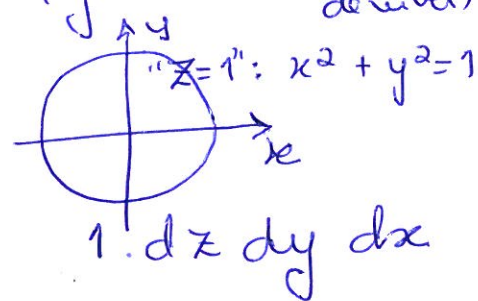 y
"z=1": x² + y²=1
x
1. dz dy dx